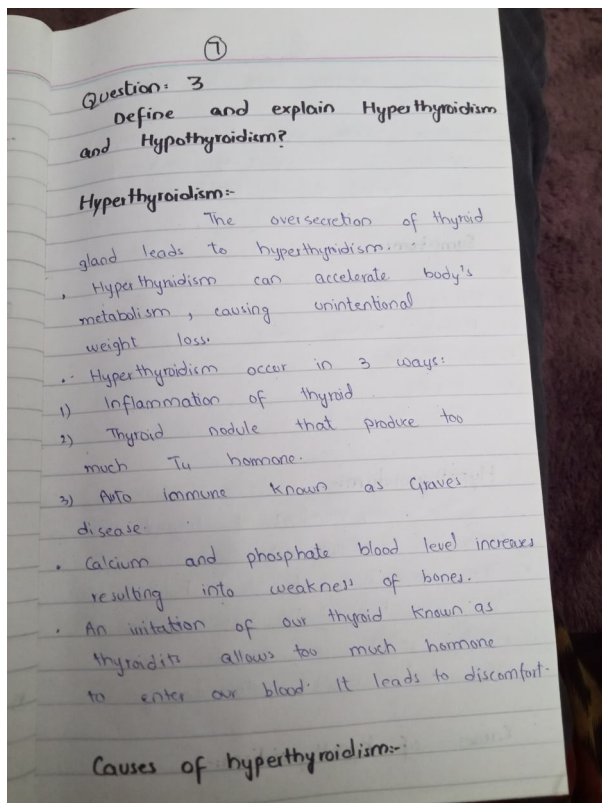 7
Question: 3
Define and explain Hyperthyroidism
and Hypothyroidism?
Hyperthyroidism:-
The oversecretion of thyroid
gland leads to hyperthyroidism.
Hyperthyroidism can accelerate body's
metabolism, causing unintentional
weight loss.
Hyperthyroidism occur in 3 ways:
1) Inflammation of thyroid
2) Thyroid nodule that produce too
much T4 hormone.
3) Auto immune known as Graves
disease.
• Calcium and phosphate blood level increases
resulting into weakness of bones.
• An irritation of our thyroid known as
thyroidits allows too much hormone
to enter our blood. It leads to discomfort.
Causes of hyperthyroidism:-